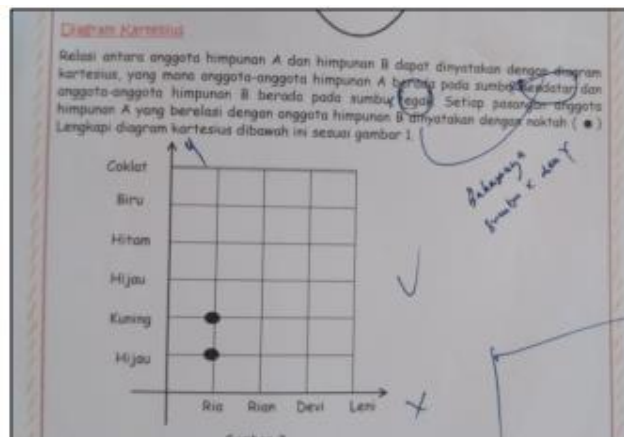 Diagram Kartesius
Relasi antara anggota himpunan A dan himpunan B dapat dinyatakan dengan diagram
kartesius, yang mana anggota-anggota himpunan A berada pada sumbu mendatar dan
anggota-anggota himpunan B berada pada sumbu tegak. Setiap pasangan anggota
himpunan A yang berelasi dengan anggota himpunan B dinyatakan dengan noktah ( ● )
Lengkapi diagram kartesius dibawah ini sesuai gambar 1.
y
Coklat
Biru
Hitam
Hijau
Kuning
Hijau
Ria Rian Devi Leni
x
sumbu x dan y